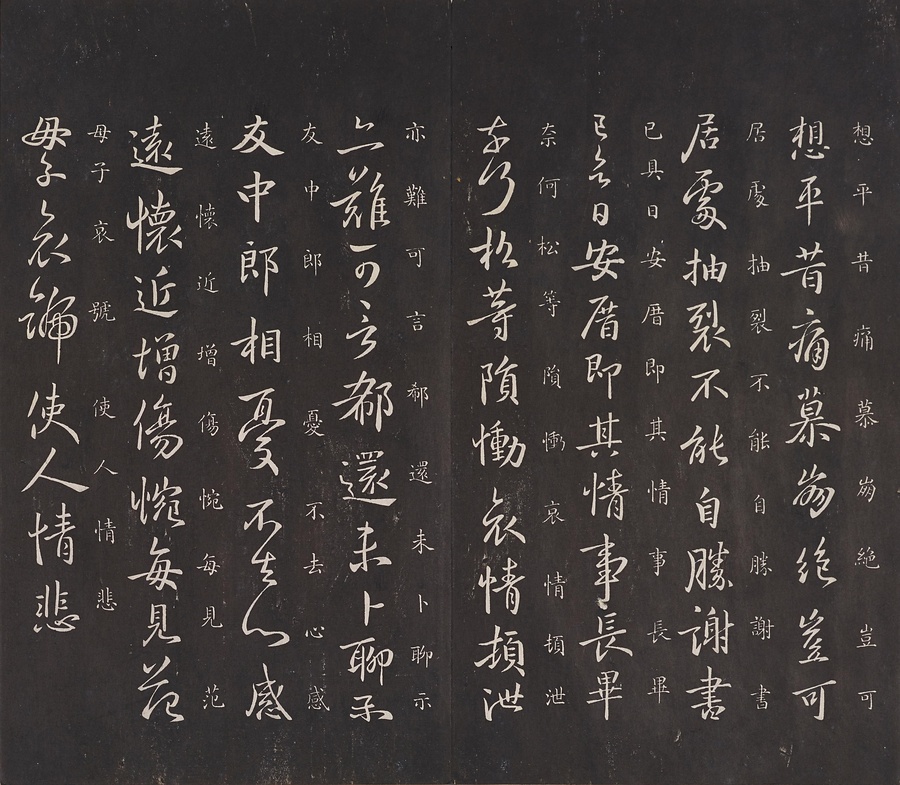 想平昔痛慕崩絶豈可
想平昔痛慕崩絶豈可
居處抽裂不能自勝謝書
居處抽裂不能自勝謝書
已具日安厝即其情事長畢
已具日安厝即其情事長畢
奈何松等隕慟哀情頓泄
奈何松等隕慟哀情頓泄
亦難可言郗還未卜聊示
亦難可言郗還未卜聊示
友中郎相憂不去心感
友中郎相憂不去心感
遠懷近增傷惋每見范
遠懷近增傷惋每見范
母子哀號使人情悲
母子哀號使人情悲